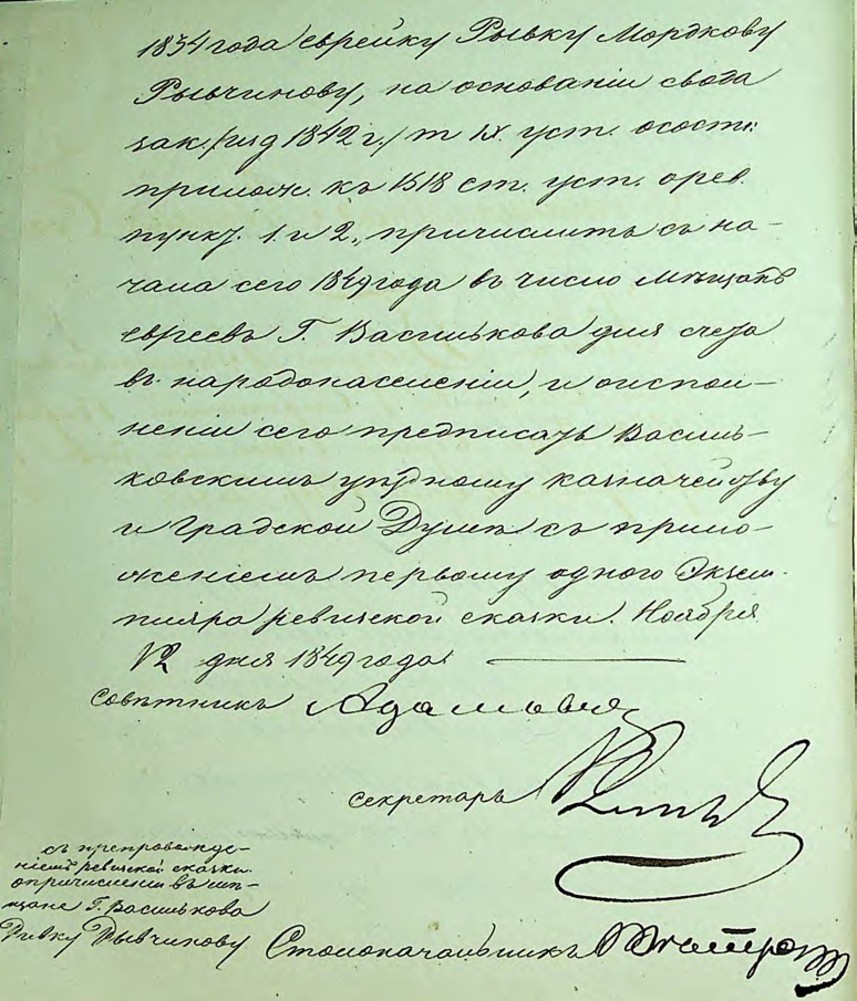 1834 года еврейку Рывку Мордкову
Рывчинову, на основаніи свода
зак. /изд 1842 г./ т IX. уст. о сост:
прилож. къ 1518 ст. уст. о рев.
пункт. 1. и 2., причислить съ на-
чала сего 1849 года въ число мѣщанъ
евреевъ Г. Василькова для счета
въ народонаселеніи, и о испол-
неніи сего предписать Василь-
ковскимъ уѣздному казначейству
и Градской Думѣ съ прило-
женіемъ первому одного Экзем-
пляра ревизской сказки. Ноября
12 дня 1849 года
Совѣтникъ Адамовичъ
Секретарь
съ препровожде-
ніемъ ревизской сказки
о причисленіи въ мѣ-
щане Г. Василькова
Ривку Рывчикову Столоначальникъ